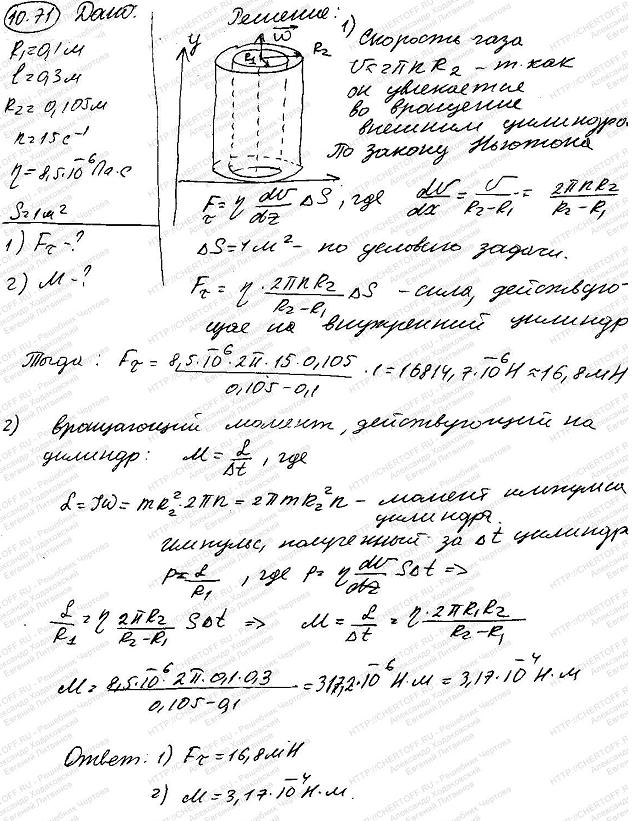 10.71 Дано:
R₁=0,1м
l=0,3м
R₂=0,105м
n=15с⁻¹
η=8,5·10⁻⁶Па·с
S=1м²
1) Fτ-?
2) M-?
Решение:
y
R₁
ω
R₂
1) Скорость газа
v=2πnR₂ – т. как
он увлекается
во вращение
внешним цилиндром
По закону Ньютона
Fτ = η dv/dz ΔS, где dv/dx = v/(R₂-R₁) = 2πnR₂/(R₂-R₁)
ΔS=1м² – по условию задачи.
Fτ = η · 2πnR₂/(R₂-R₁) ΔS – сила, действую-
щая на внутренний цилиндр
Тогда: Fτ = 8,5·10⁻⁶·2π·15·0,105/(0,105-0,1) · 1 = 16814,7·10⁻⁶Н ≈ 16,8мН
2) вращающий момент, действующий на
цилиндр: M = L/Δt, где
L = Jω = mR₂²·2πn = 2πmR₂²n – момент импульса
цилиндра.
Импульс, полученный за Δt цилиндра
P = L/R₁, где P = η dv/dz SΔt =>
L/R₁ = η 2πR₂/(R₂-R₁) SΔt => M = L/Δt = η·2πR₁R₂/(R₂-R₁)
M = 8,5·10⁻⁶·2π·0,1·0,3/(0,105-0,1) = 317,2·10⁻⁶Н·м = 3,17·10⁻⁴Н·м
Ответ: 1) Fτ = 16,8мН
2) M = 3,17·10⁻⁴Н·м.